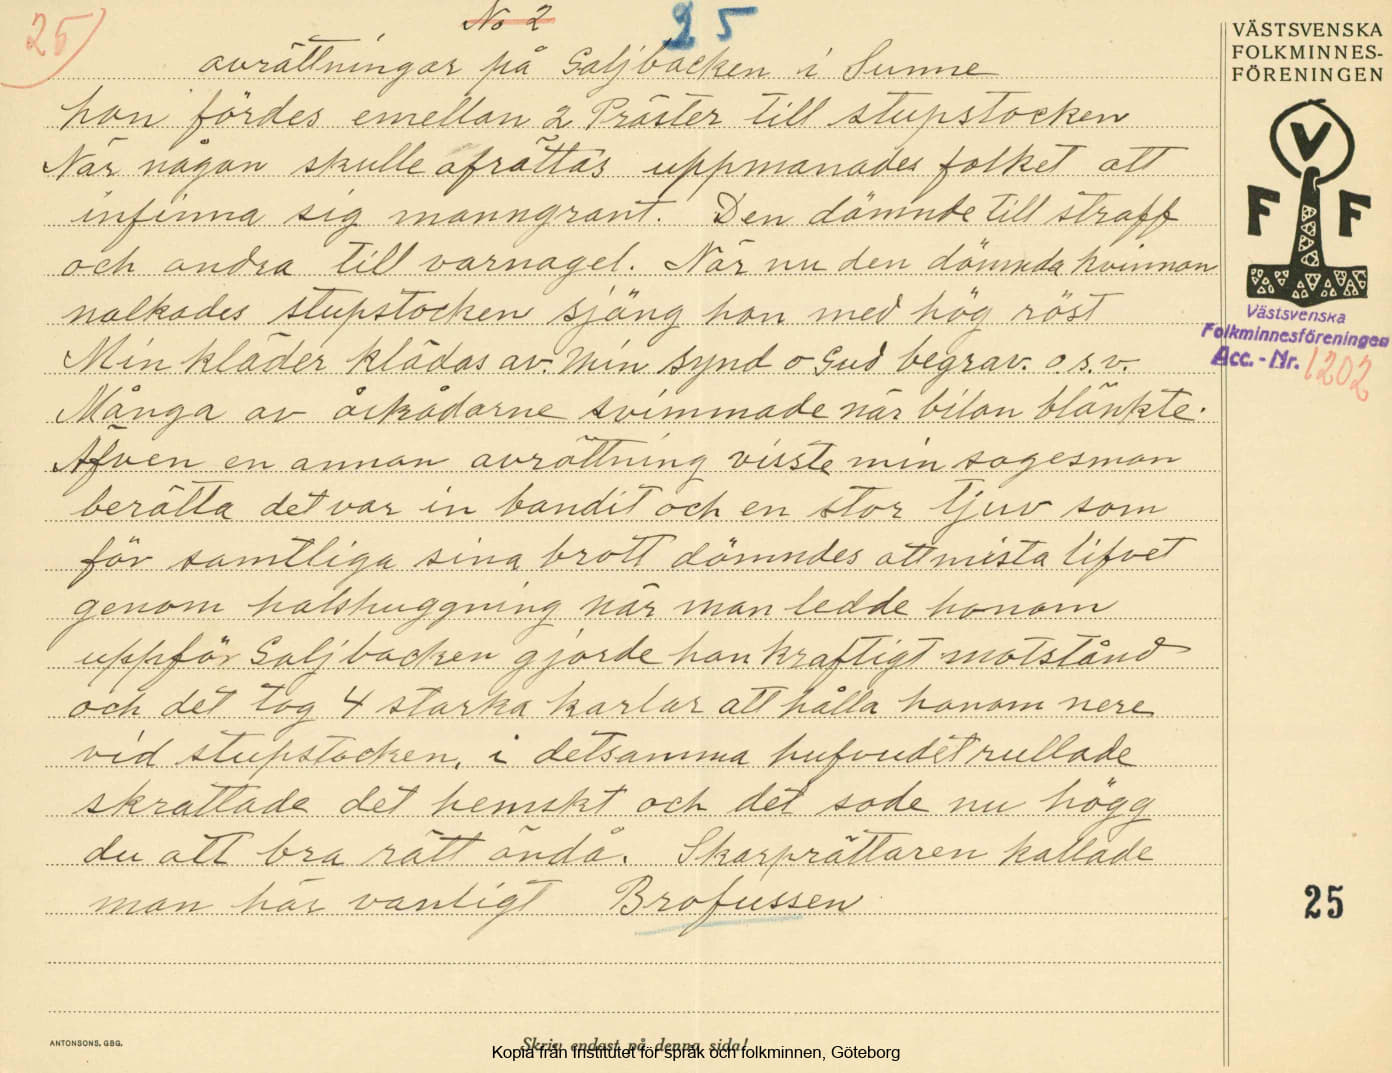 25)
No 2
25
avrättningar på Galjbacken i Sunne
hon fördes emellan 2 Präster till stupstocken
När någon skulle afrättas uppmanades folket att
infinna sig manngrant. Den dömnde till straff
och andra till varnagel. När nu den dömnda kvinnan
nalkades stupstocken sjöng hon med hög röst
Min kläder klädas av. Min synd o Gud begrav. o.s.v.
Många av åskådarne svimmade när bilan blänkte.
Äfven en annan avrättning visste min sagesman
berätta det var in bandit och en stor tjuv som
för samtliga sina brott dömndes att mista lifvet
genom halshuggning när man ledde honom
uppför Galjbacken gjorde han kraftigt motstånd
och det tog 4 starka karlar att hålla honom nere
vid stupstocken, i detsamma hufvudet rullade
skrattade det hemskt och det sade nu högg
du att bra rätt ändå. Skarprättaren kallade
man här vanligt Brofussen
VÄSTSVENSKA
FOLKMINNES-
FÖRENINGEN
V
F F
Västsvenska
Folkminnesföreningen
Acc.-Nr. 1202
25
ANTONSONS, GBG.
Skriv endast på denna sida!
Kopia från Institutet för språk och folkminnen, Göteborg